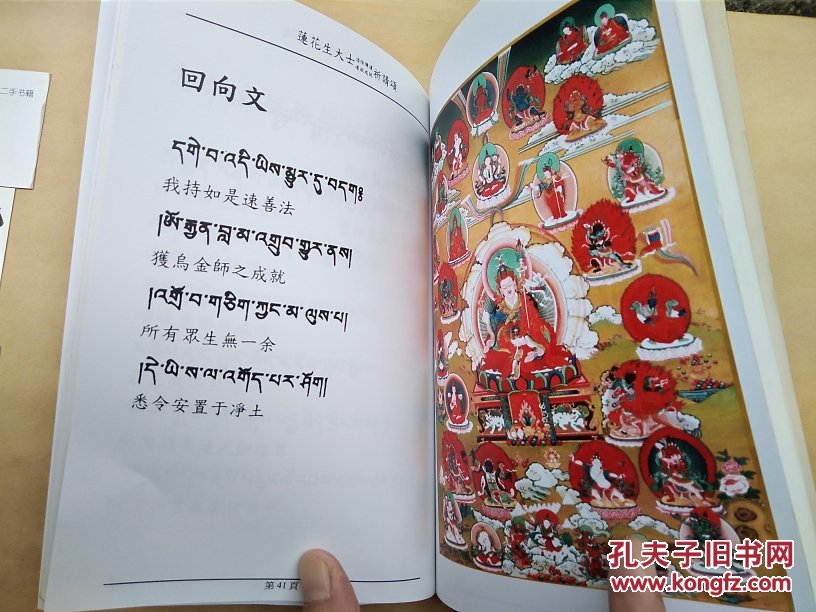 二手书籍
蓮花生大士
祈請頌
回向文
དགེ་བ་འདི་ཡིས་མྱུར་དུ་བདག༔
我持如是速善法
།ཨོ་རྒྱན་བླ་མ་འགྲུབ་གྱུར་ནས།
獲烏金師之成就
།འགྲོ་བ་གཅིག་ཀྱང་མ་ལུས་པ།
所有眾生無一余
།དེ་ཡི་ས་ལ་འགོད་པར་ཤོག།
悉令安置于凈土
第41頁
孔夫子旧书网
www.kongfz.com